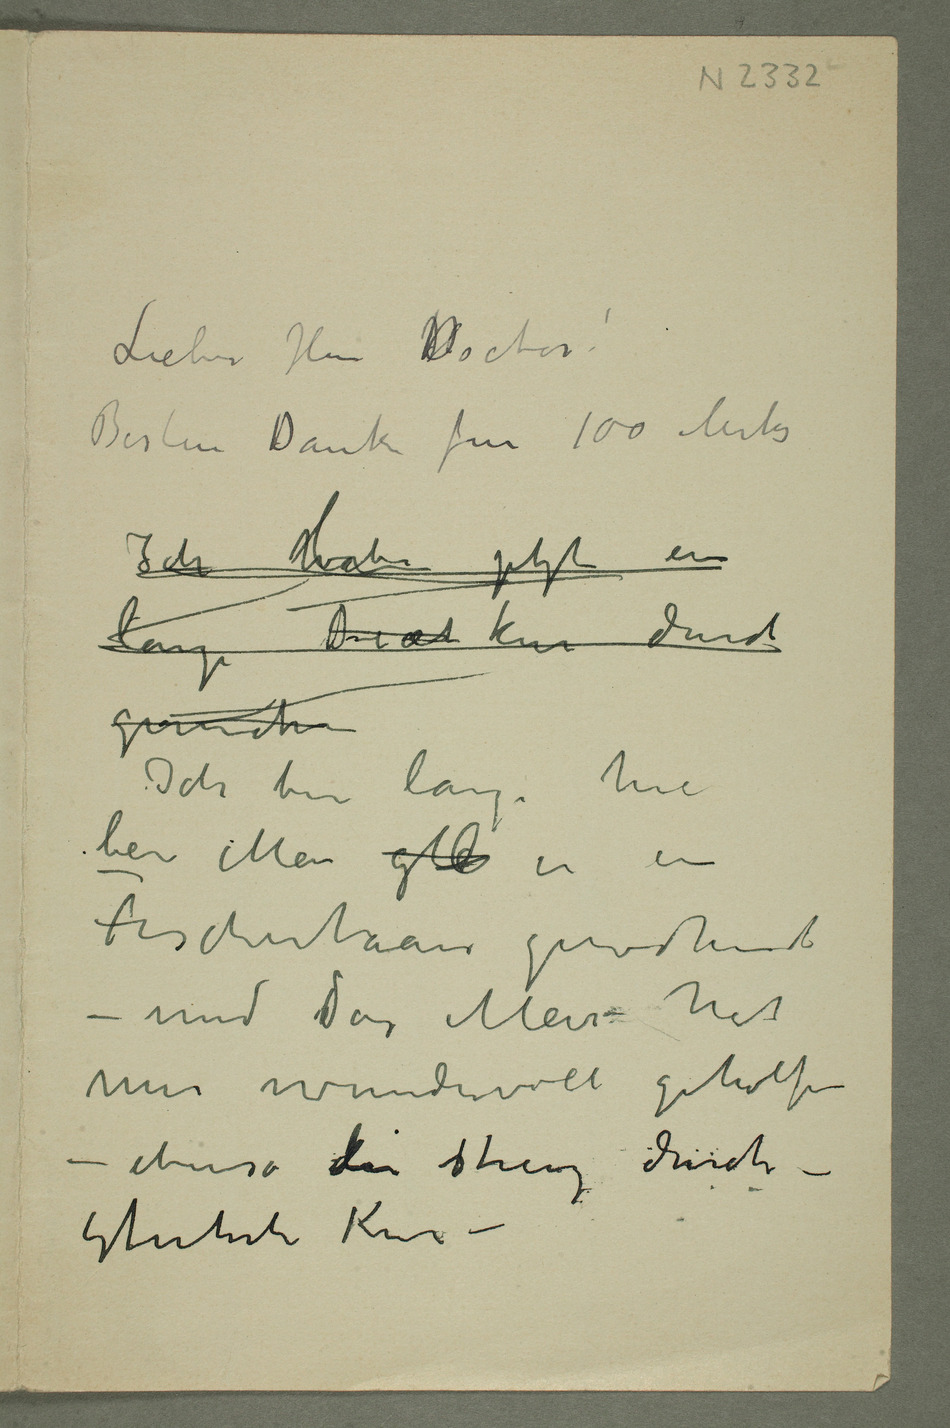 N 2332
Lieber Herr Doctor!
Besten Dank für 100 Mark
Ich habe jetzt ein
lange Diæt kur durch
gemacht
Ich bin lange hie
bei Meer in ein
Fischerhaus gewohnt
– und das Meer hat
mir wundervoll geholfen
– ebenso die streng durch –
geführte Kur –